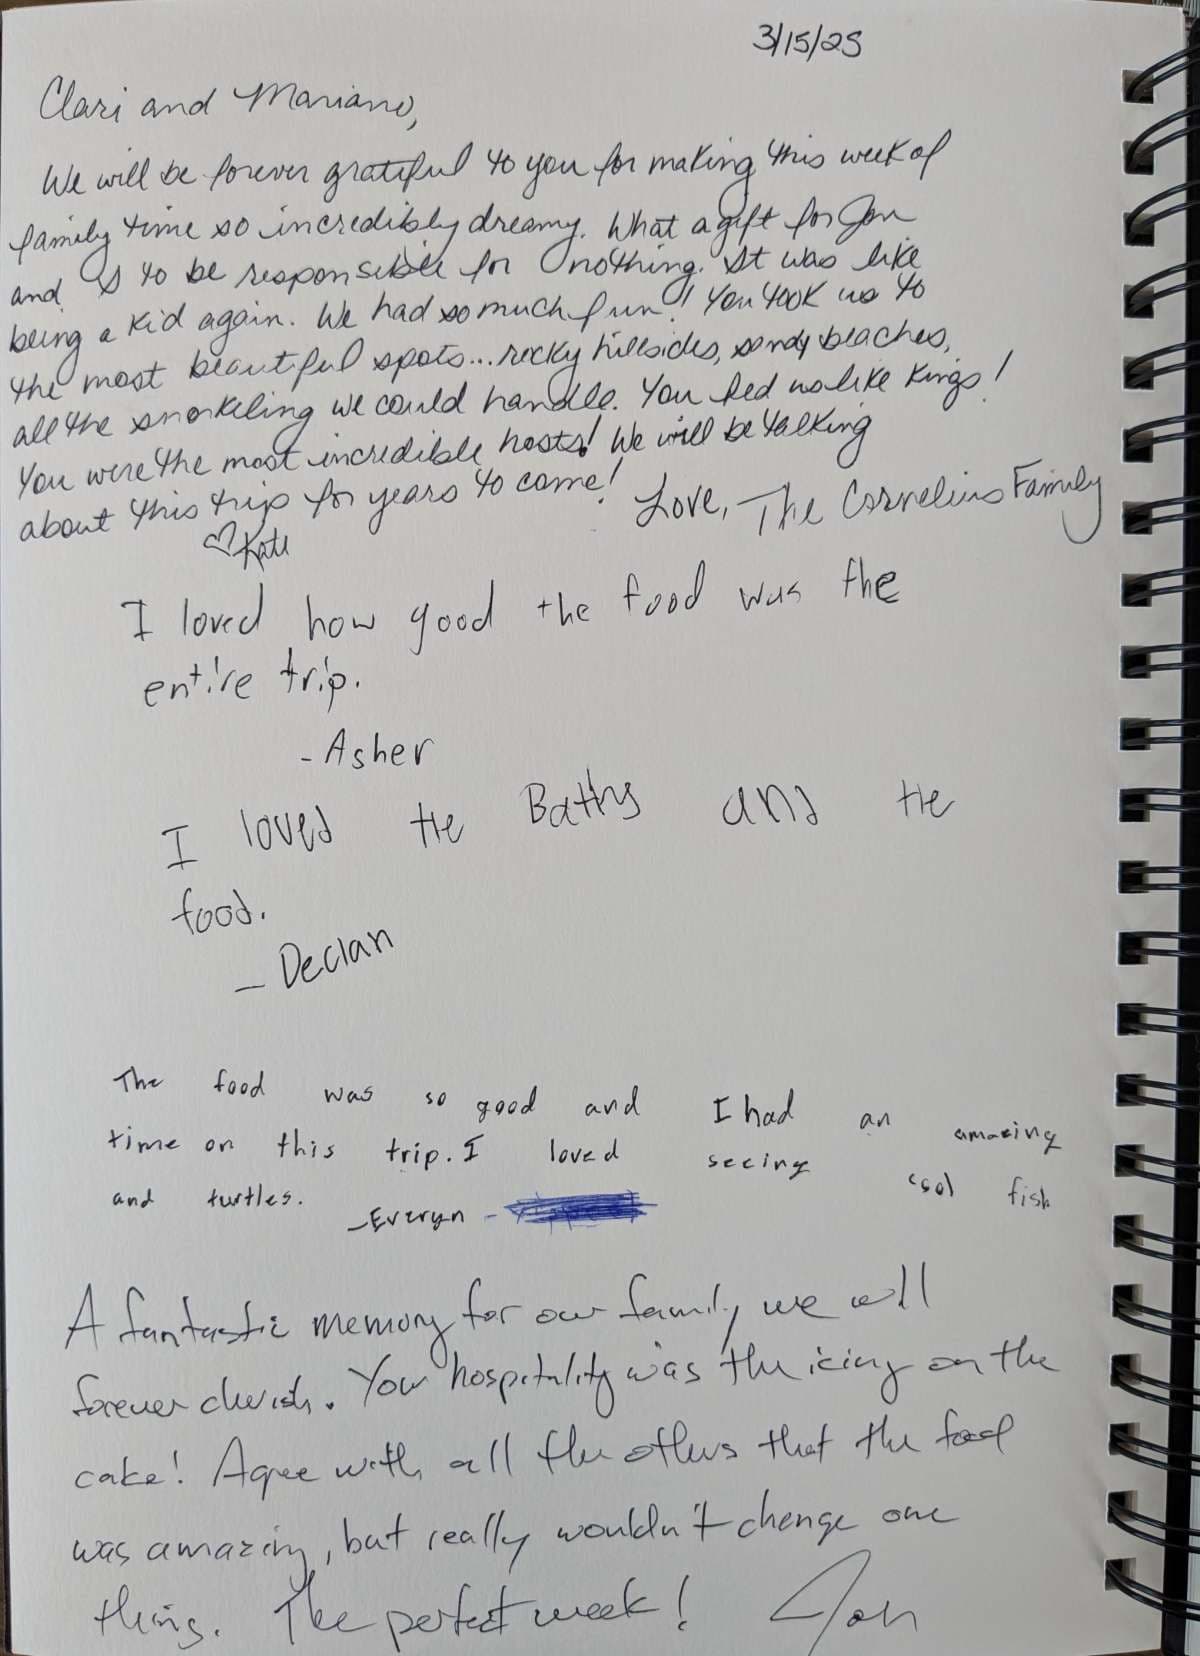 3/15/25
Clari and Mariano,
We will be forever grateful to you for making this week of
family time so incredibly dreamy. What a gift for Jon
and I to be responsible for nothing. It was like
being a kid again. We had so much fun! You took us to
the most beautiful spots... rocky hillsides, sandy beaches,
all the snorkeling we could handle. You fed us like kings!
You were the most incredible hosts! We will be talking
about this trip for years to come!
Love, The Cornelius Family
♡Kate
I loved how good the food was the
entire trip.
-Asher
I loved the Baths and the
food.
- Declan
The food was so good and I had an amazing
time on this trip. I loved seeing cool fish
and turtles.
-Everyn -
A fantastic memory for our family we will
forever cherish. Your hospitality was the icing on the
cake! Agree with all the others that the food
was amazing, but really wouldn't change one
thing. The perfect week! Jon